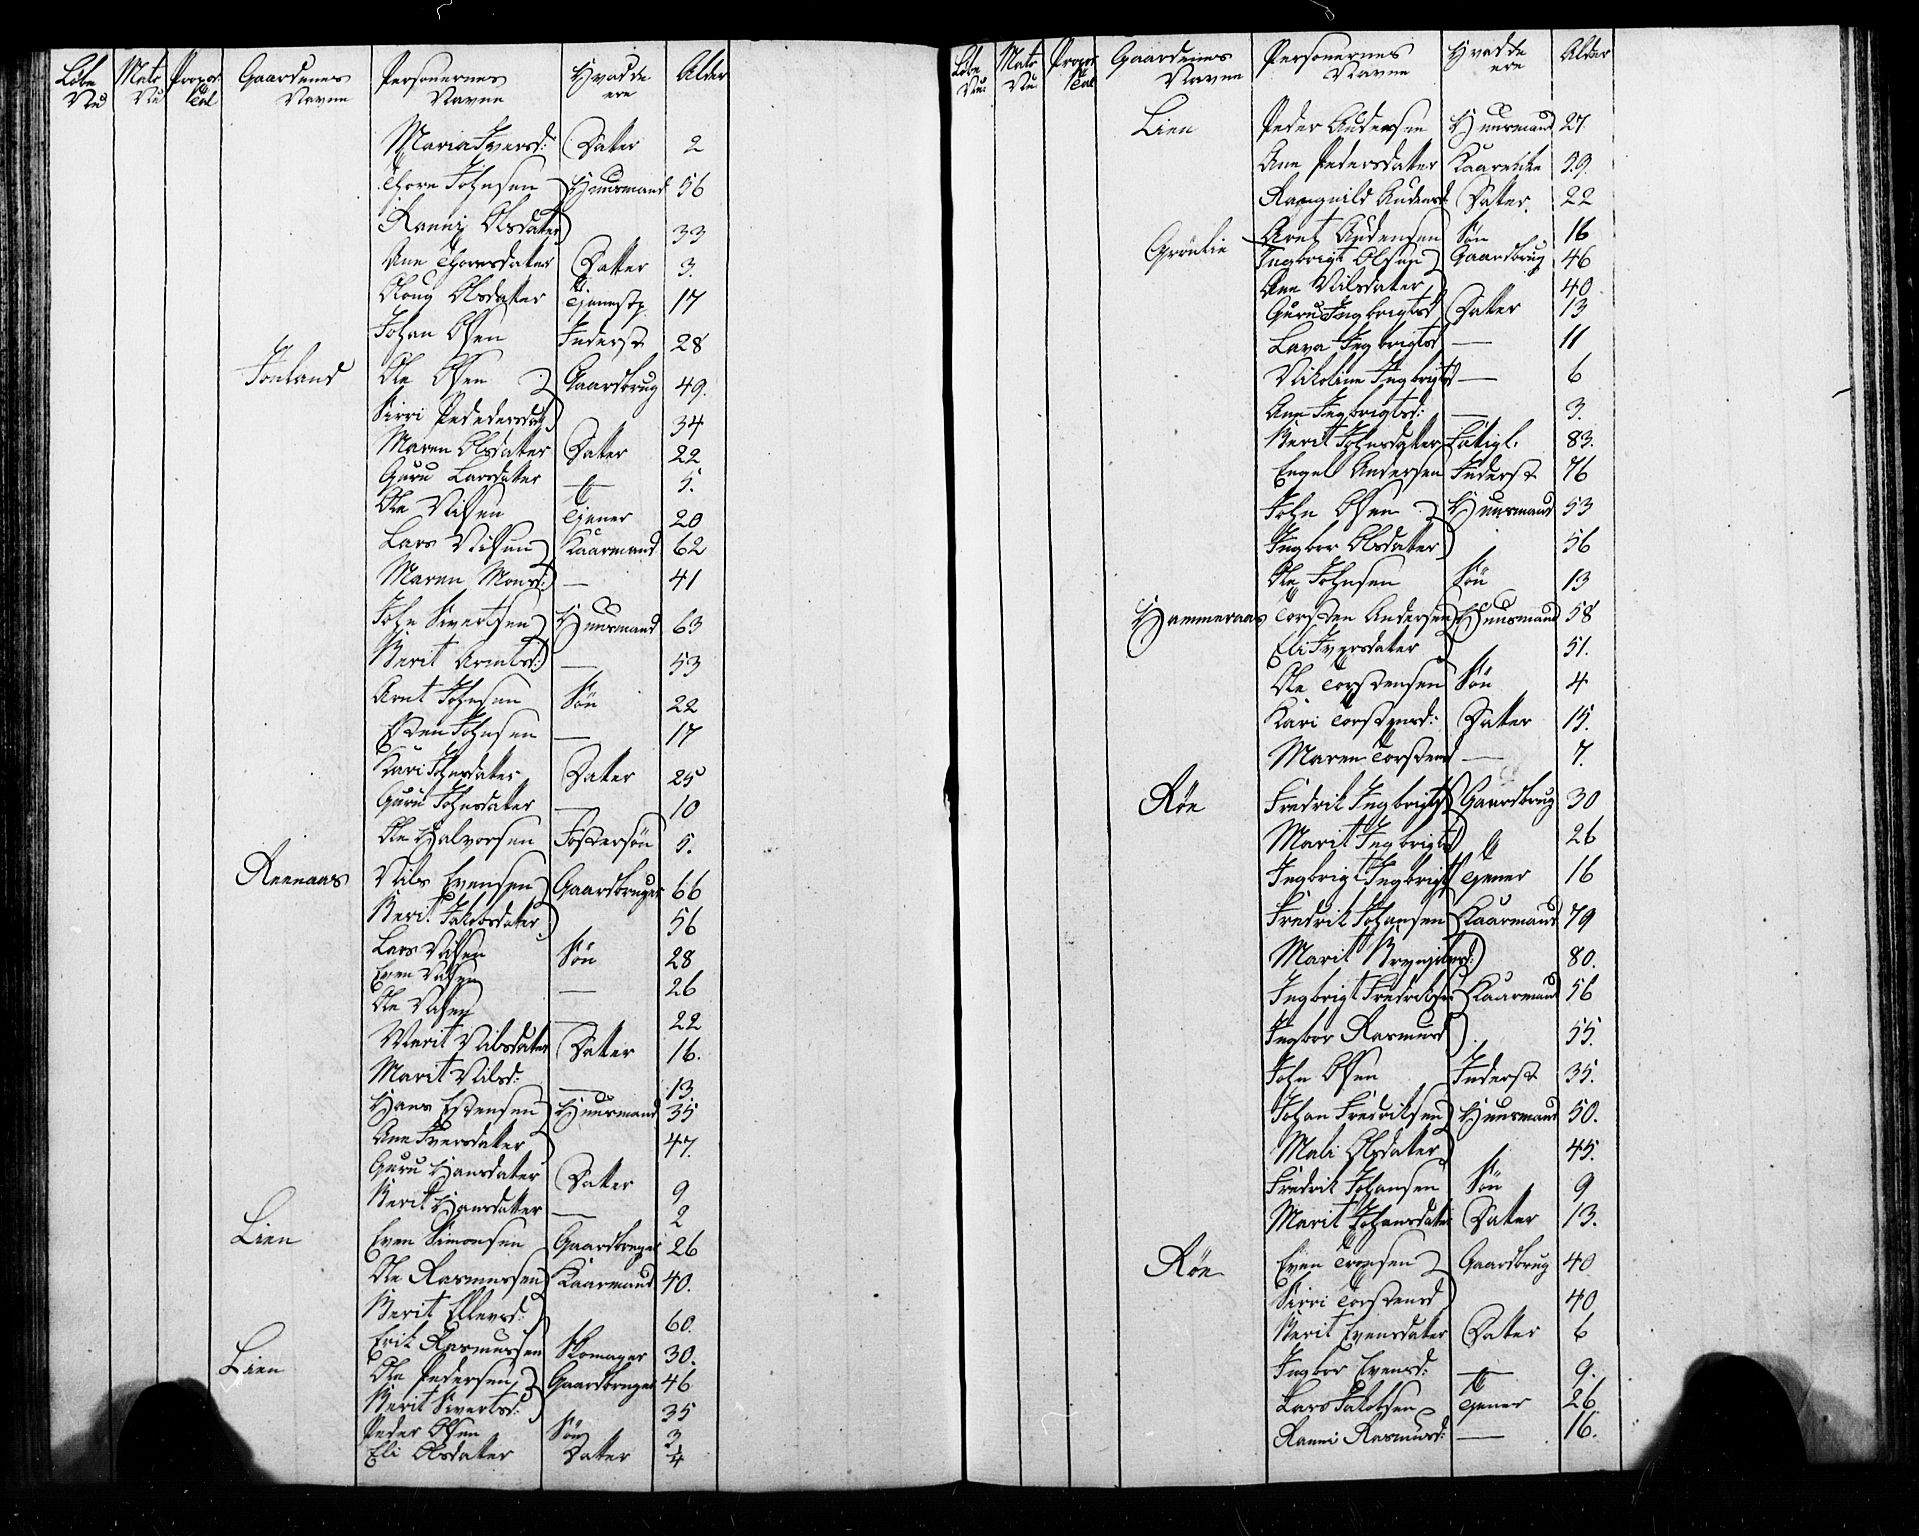 Löbe Nu Matr Nu Propor Tal Gaardenes Navne Personernes Navne Hvad de ere Alder
Maria Iversd: Datter 2
Thore Johnsen Huusmand 56
Ranni Olsdatter 33
Ane Thoresdatter Datter 3.
Oloug Olsdatter Tjenestp. 17
Johan Olsen Inderst 28
Jonland Ole Olsen Gaardbrug 49.
Sirri Pededersdat 34
Maren Olsdatter Datter 22
Guru Larsdatter — 5.
Ole Nilsen Tjener 20
Lars Nilsen Kaarmand 62
Maren Monsd: — 41
John Sivertsen Huusmand 63
Berit Arntsd: — 53
Arnt Johnsen Sön 22
Esten Johnsen — 17
Kari Johnsdatter Datter 25
Guru Johnsdatter — 10
Ole Halvorsen Fostersön 5.
Renaas Nils Evensen Gaardbruger 66
Berit Jakobsdatter 56
Lars Nilsen Sön 28
Even Nilsen — 26
Ole Nilsen — 22
Merit Nilsdatter Datter 16.
Marit Nilsd: — 13.
Hans Estensen Huusmand 35
Ane Iversdatter 47.
Guru Hansdatter Datter 9
Berit Hansdatter — 2
Lien Even Simonsen Gaardbruger 26
Ole Rasmussen Kaarmand 40.
Berit Ellevsd: 60.
Erik Rasmussen Skomager 30.
Lien Ole Pedersen Gaardbruger 46
Berit Sivertsd: 35
Peder Olsen Sön 3
Eli Olsdatter Datter ¼
Löbe Nu Matr Nu Propor Tal Gaardenes Navne Personernes Navne Hvad de ere Alder
Lien Peder Andersen Huusmand 27.
Ane Pedersdatter Kaarenke 59.
Rangnild Andersd Datter 22
Arnt Andersen Sön 16
Grönlie Ingbrigt Olsen Gaardbrug 46
Ane Nilsdatter 40
Guru Ingbrigtsd Datter 13
Lava Ingbrigtsd — 11
Nikoline Ingbrigtsd — 6
Ane Ingbrigtsd: — 3.
Berit Johnsdatter Fatigl. 83.
Engel Andersen Inderst 76
John Olsen Huusmand 53
Ingbor Olsdatter 56
Ole Johnsen Sön 13
Hammeraas Torsten Andersen Huusmand 58
Eli Iversdatter 51.
Ole Torstensen Sön 4
Kari Torstensd: Datter 15.
Maren Torstensd — 7.
Röe Fredrik Ingbrigts Gaardbrug 30
Marit Ingbrigtsd 26
Ingbrigt Ingbrigts Tjener 16
Fredrik Johansen Kaarmand 79
Marit Brynjelvsd: 80.
Ingbrigt Fredriksen Kaarmand 56
Ingbor Rasmusd 55.
John Olsen Inderst 35.
Johan Fredriksen Huusmand 50.
Mali Olsdatter 45.
Fredrik Johansen Sön 9
Marit Johansdatter Datter 13.
Röe Even Tronsen Gaardbrug 40
Sirri Torstensd 40
Berit Evensdatter Datter 6
Ingbor Evensd: — 9.
Lars Jakobsen Tjener 26
Ranni Rasmusd: — 16.